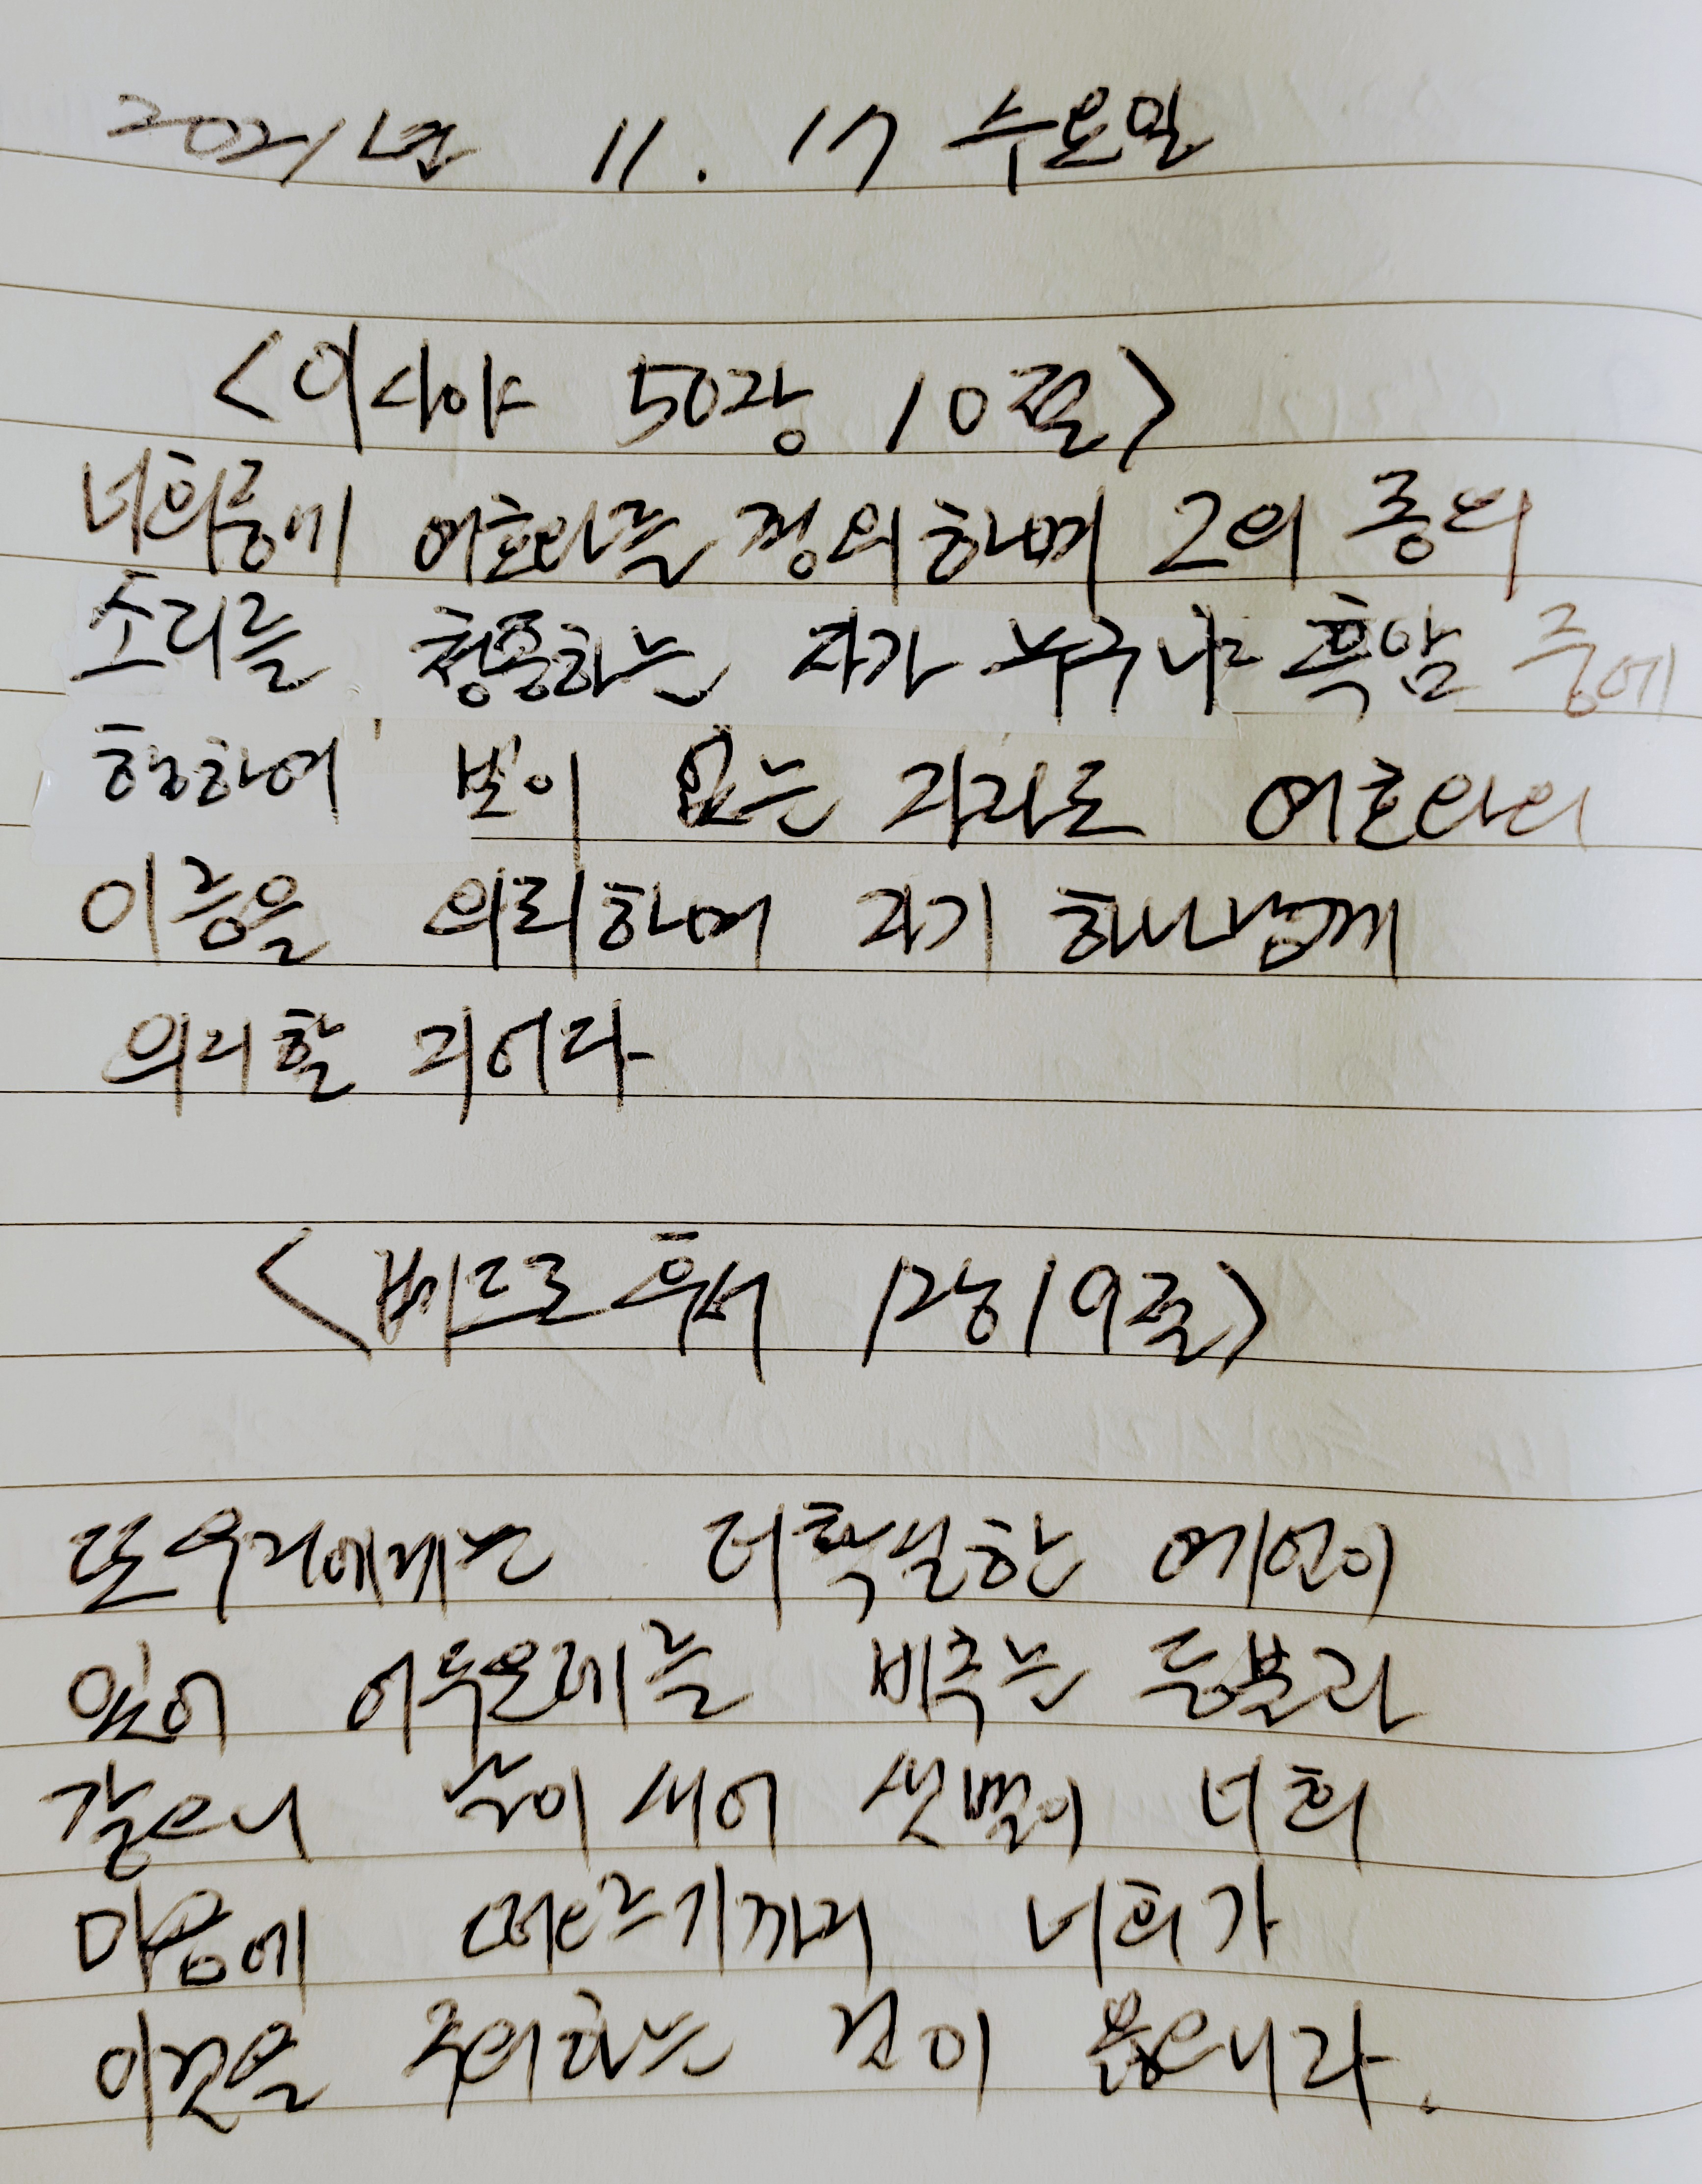 2021년 11. 17 수요일
<이사야 50장 10절>
너희중에 여호와를 경외하며 그의 종의
소리를 청종하는 자가 누구냐 흑암 중에
행하여 빛이 없는 자라도 여호와의
이름을 의뢰하며 자기 하나님께
의지할 지어다
<베드로후서 1장19절>
또 우리에게는 더 확실한 예언이
있어 어두운데를 비추는 등불과
같으니 날이 새어 샛별이 너희
마음에 떠오르기까지 너희가
이것을 주의하는 것이 옳으니라.